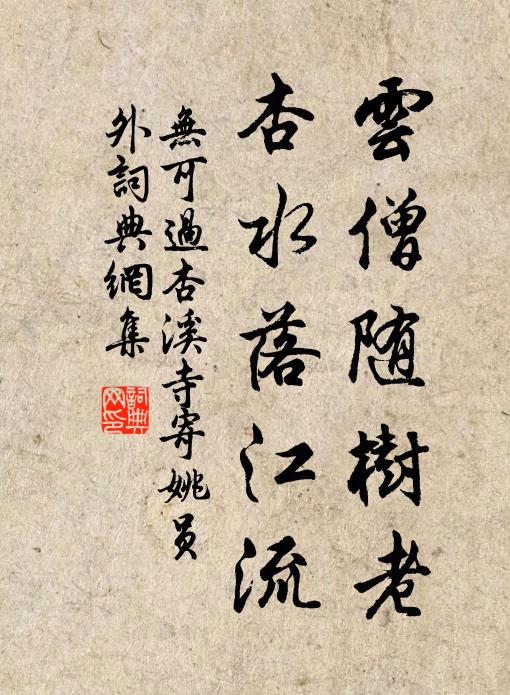 雲僧随樹老
杏水落江流
無可過杏溪寺寄姚员
外詞典網集
詞典
网印